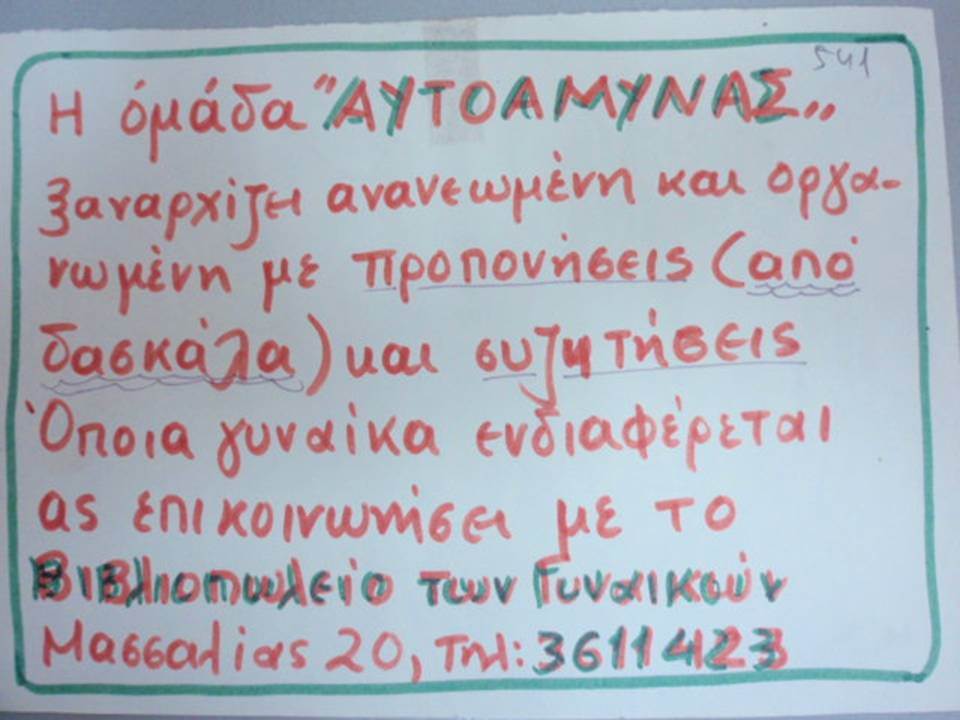 541
Η ὁμάδα "ΑΥΤΟΑΜΥΝΑΣ„
ξαναρχίζει ανανεωμένη και οργα-
νωμένη με προπονήσεις (από
δασκάλα) και συζητήσεις
Όποια γυναίκα ενδιαφέρεται
ας επικοινωνήσει με το
Βιβλιοπωλείο των Γυναικών
Μασσαλίας 20, τηλ: 3611423